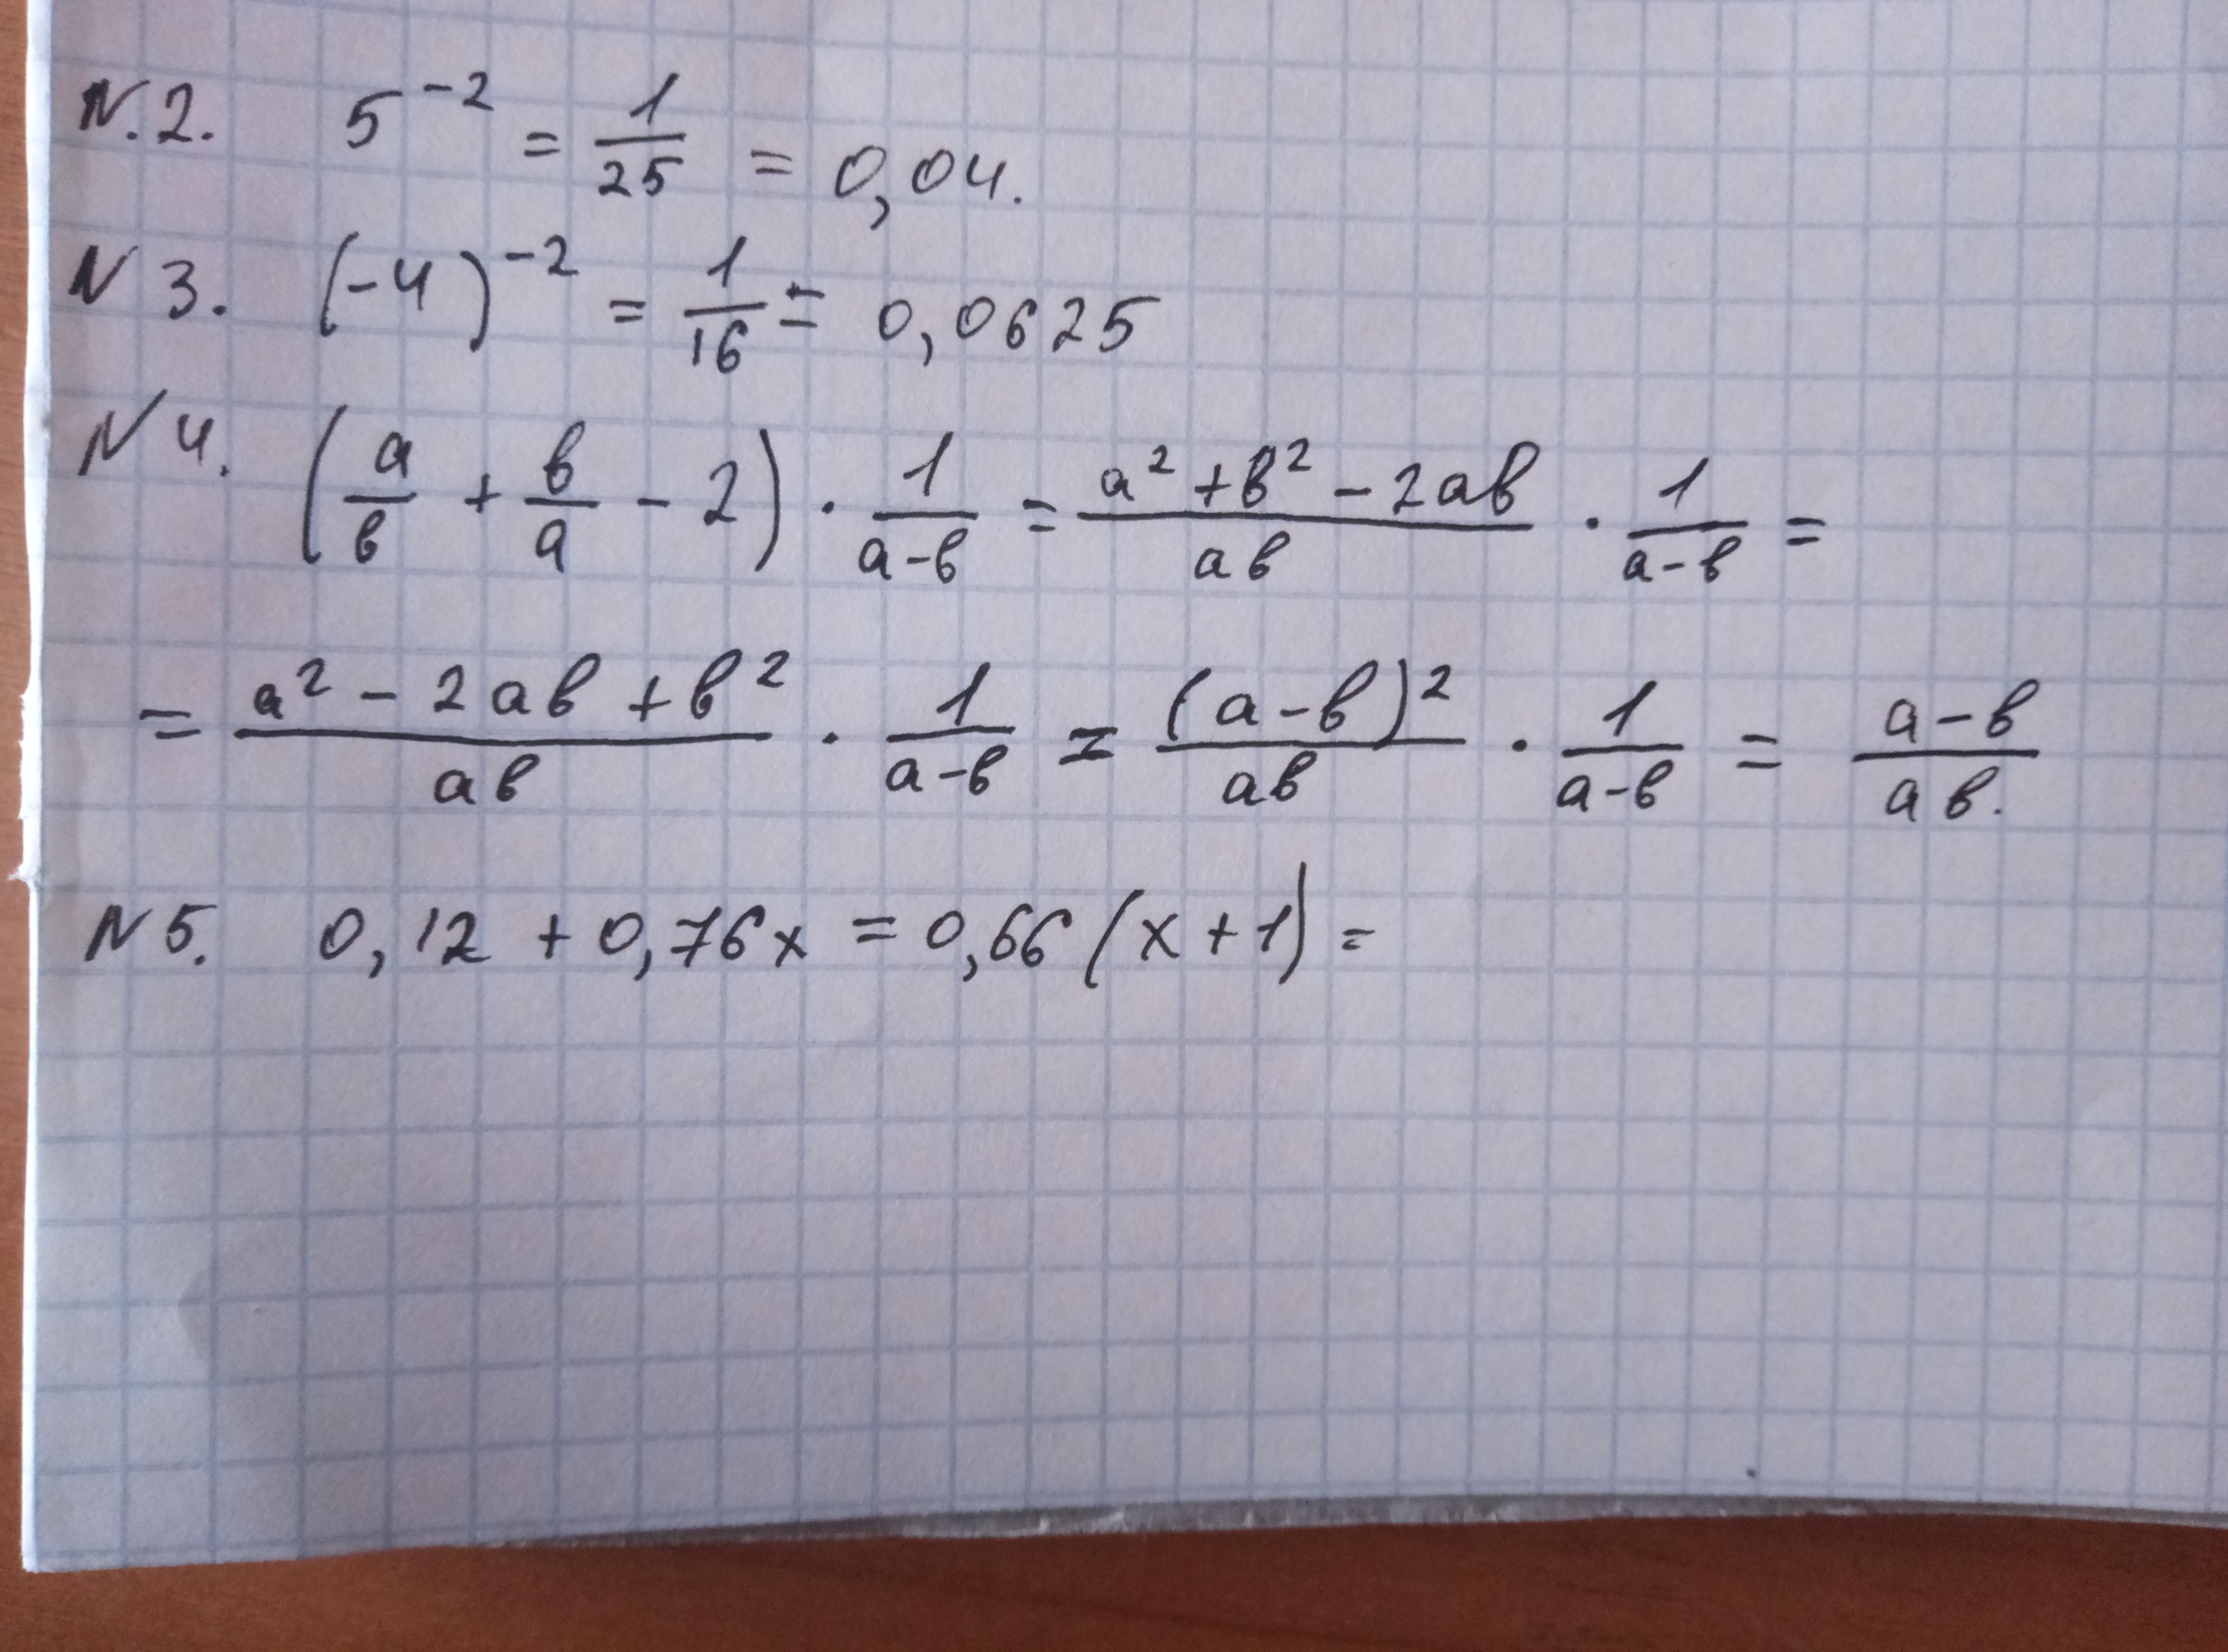 N.2. 5^{-2} = \frac{1}{25} = 0,04.
N 3. (-4)^{-2} = \frac{1}{16} = 0,0625
N 4. (\frac{a}{b} + \frac{b}{a} - 2) · \frac{1}{a-b} = \frac{a^2 + b^2 - 2ab}{ab} · \frac{1}{a-b} =
= \frac{a^2 - 2ab + b^2}{ab} · \frac{1}{a-b} = \frac{(a-b)^2}{ab} · \frac{1}{a-b} = \frac{a-b}{ab}.
N 5. 0,12 + 0,76x = 0,66(x+1) =